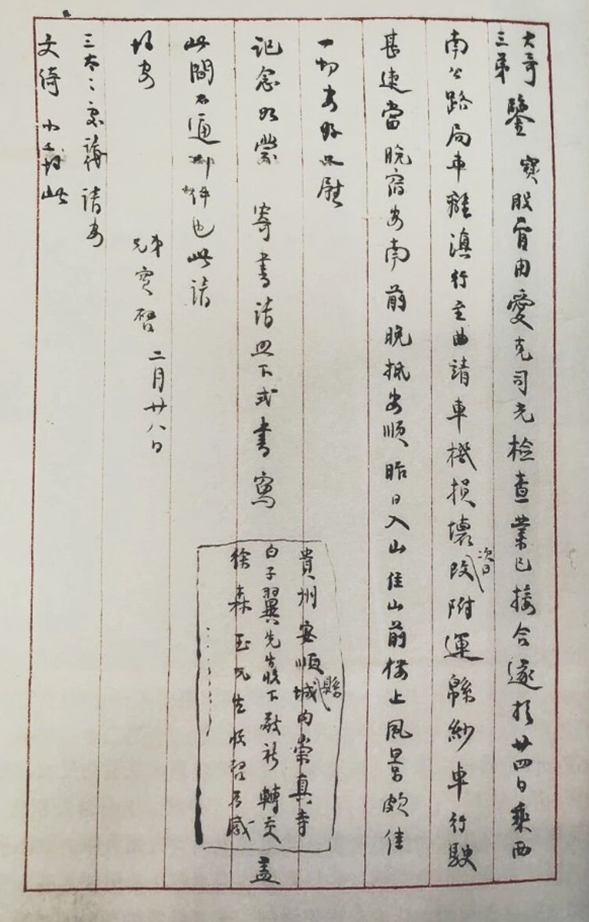 大哥
三弟鑒寶股骨由愛克司光檢查業已接合遂於廿四日乘西
南公路局車離滇行至曲靖車機損壞次日改附運緜紗車行駛
甚速當晚宿安南前晚抵安順昨日入山住山前樓上風景頗佳
一切安好只慰
記念如蒙寄書請照下式書寫
貴州安順縣城內崇真寺
白子翼先生殿下敬祈轉交
徐森玉先生收啓為感
蓋
此間不通郵件也此請
均安
弟
兄寶啓二月廿八日
三太太處請安
文綺小